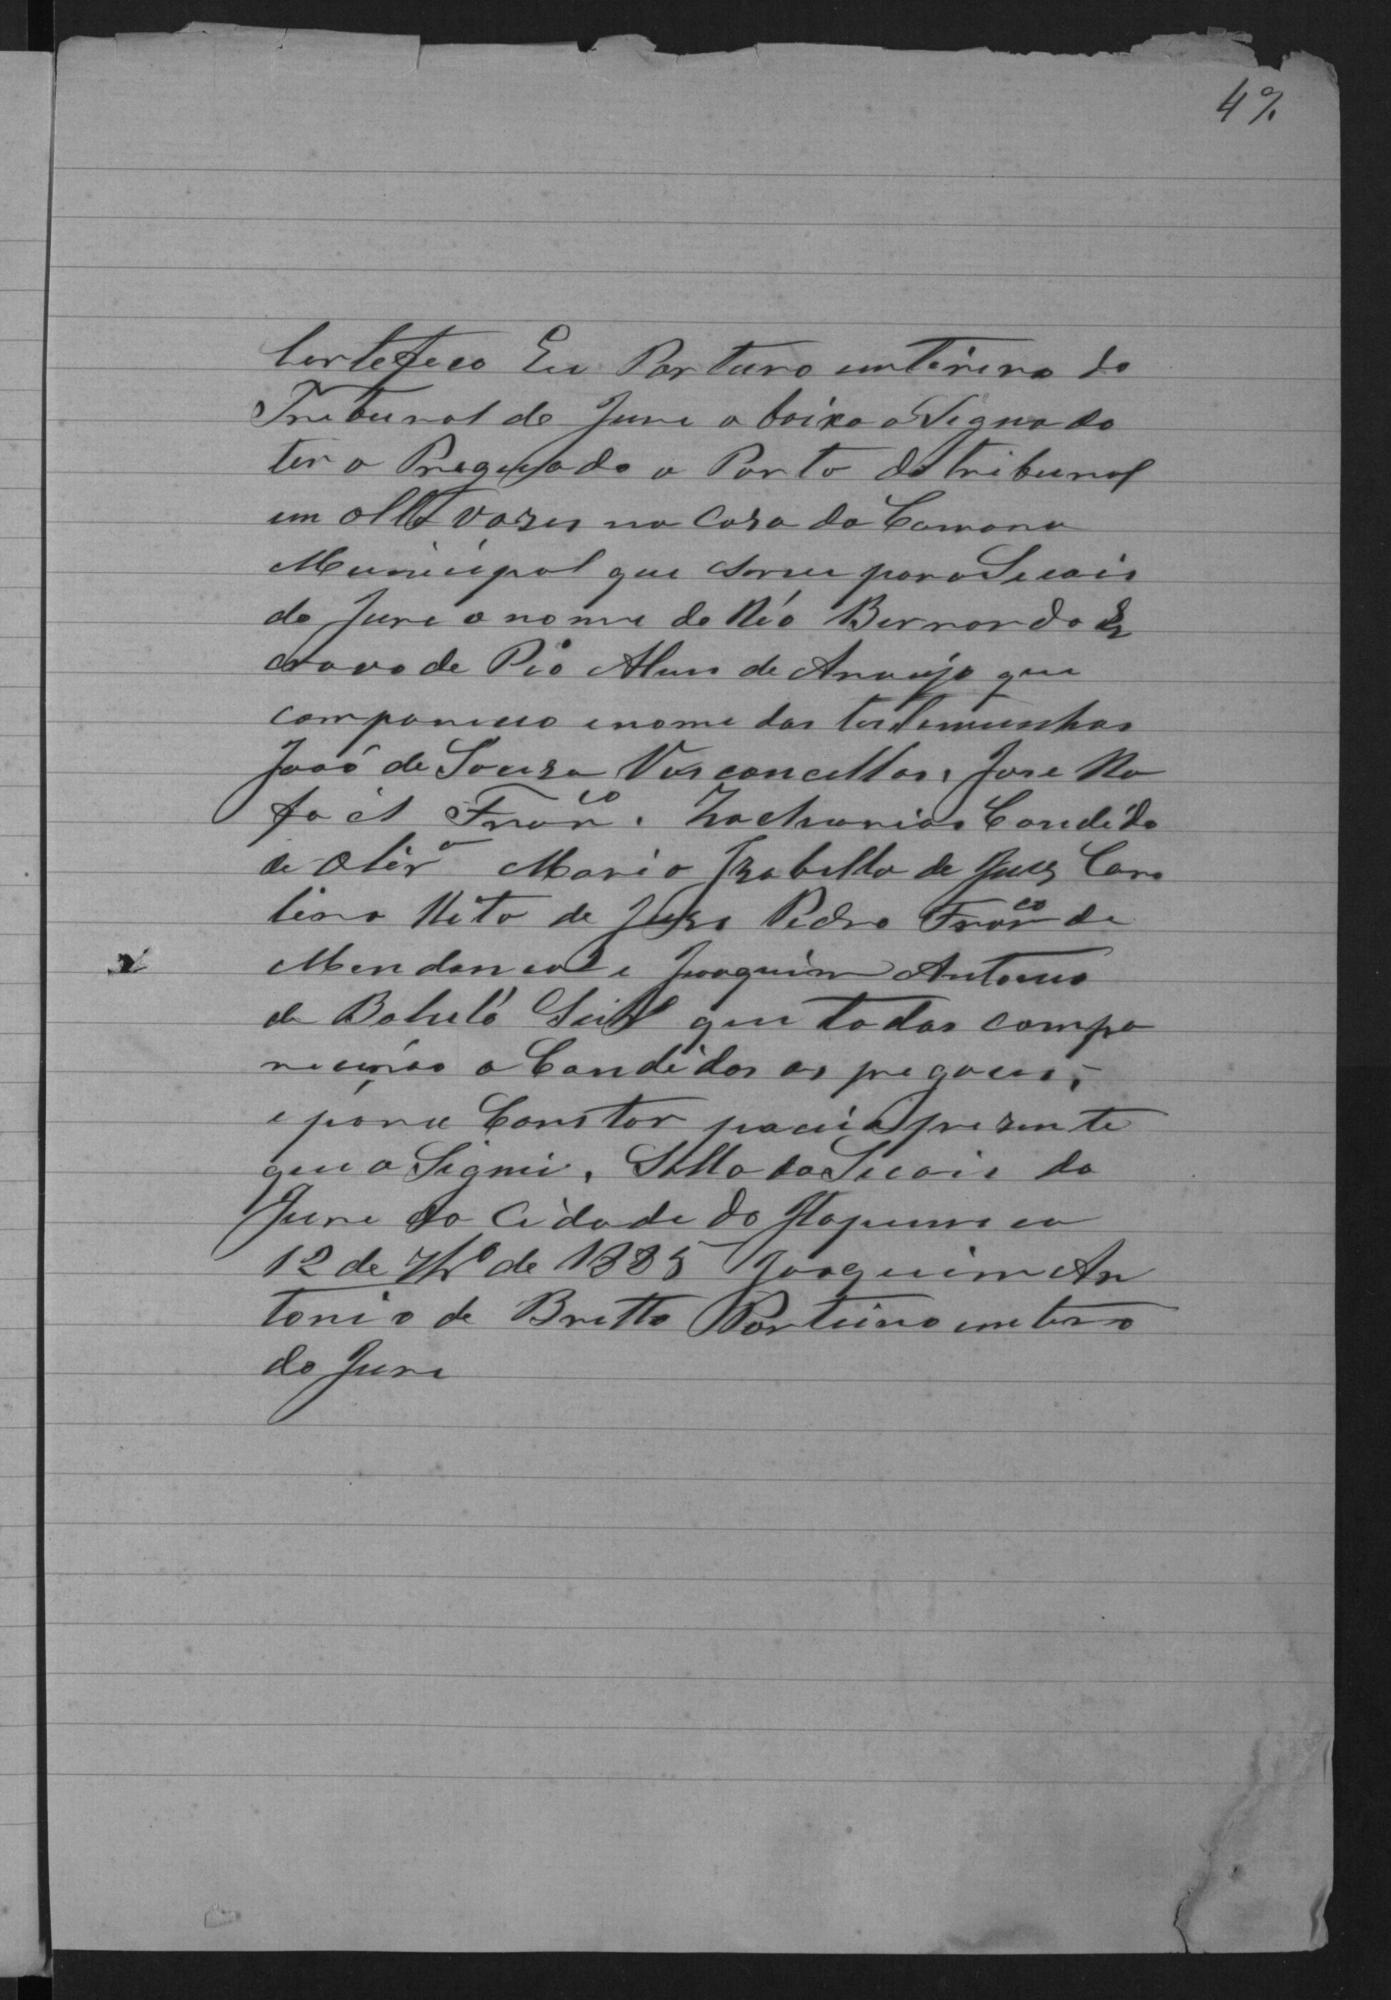 47
Certefeco Eu Porturo enterino do
Tribunal de Jure a baixo a Signado
ter a Preguado a Porta do tribunal
em alltas vozes na Caza da Camara
Municipal que serve para Secois
do Jure o nome do Réo Bernardo Es
cravo de Pio Alves de Araujo que
compareceo e nome das testemunhas
João de Souza Vasconcellos, Jose Ra
fael Franco. Zacharias Candido
de Olivra Maria Izabella de Jesus Caro
lina Rita de Jezus Pedro Franco de
Mendanca e Joaquim Antonio
de Botelo que todos compa
recerão a Candidos os pregois,
e para Constar pacei a prezente
que a Signei. Salla da Secois do
Jure da Cidade do Itapemerim
12 de 7bro de 1885 Joaquim An
tonio de Britto Porteiro entero
do Jure